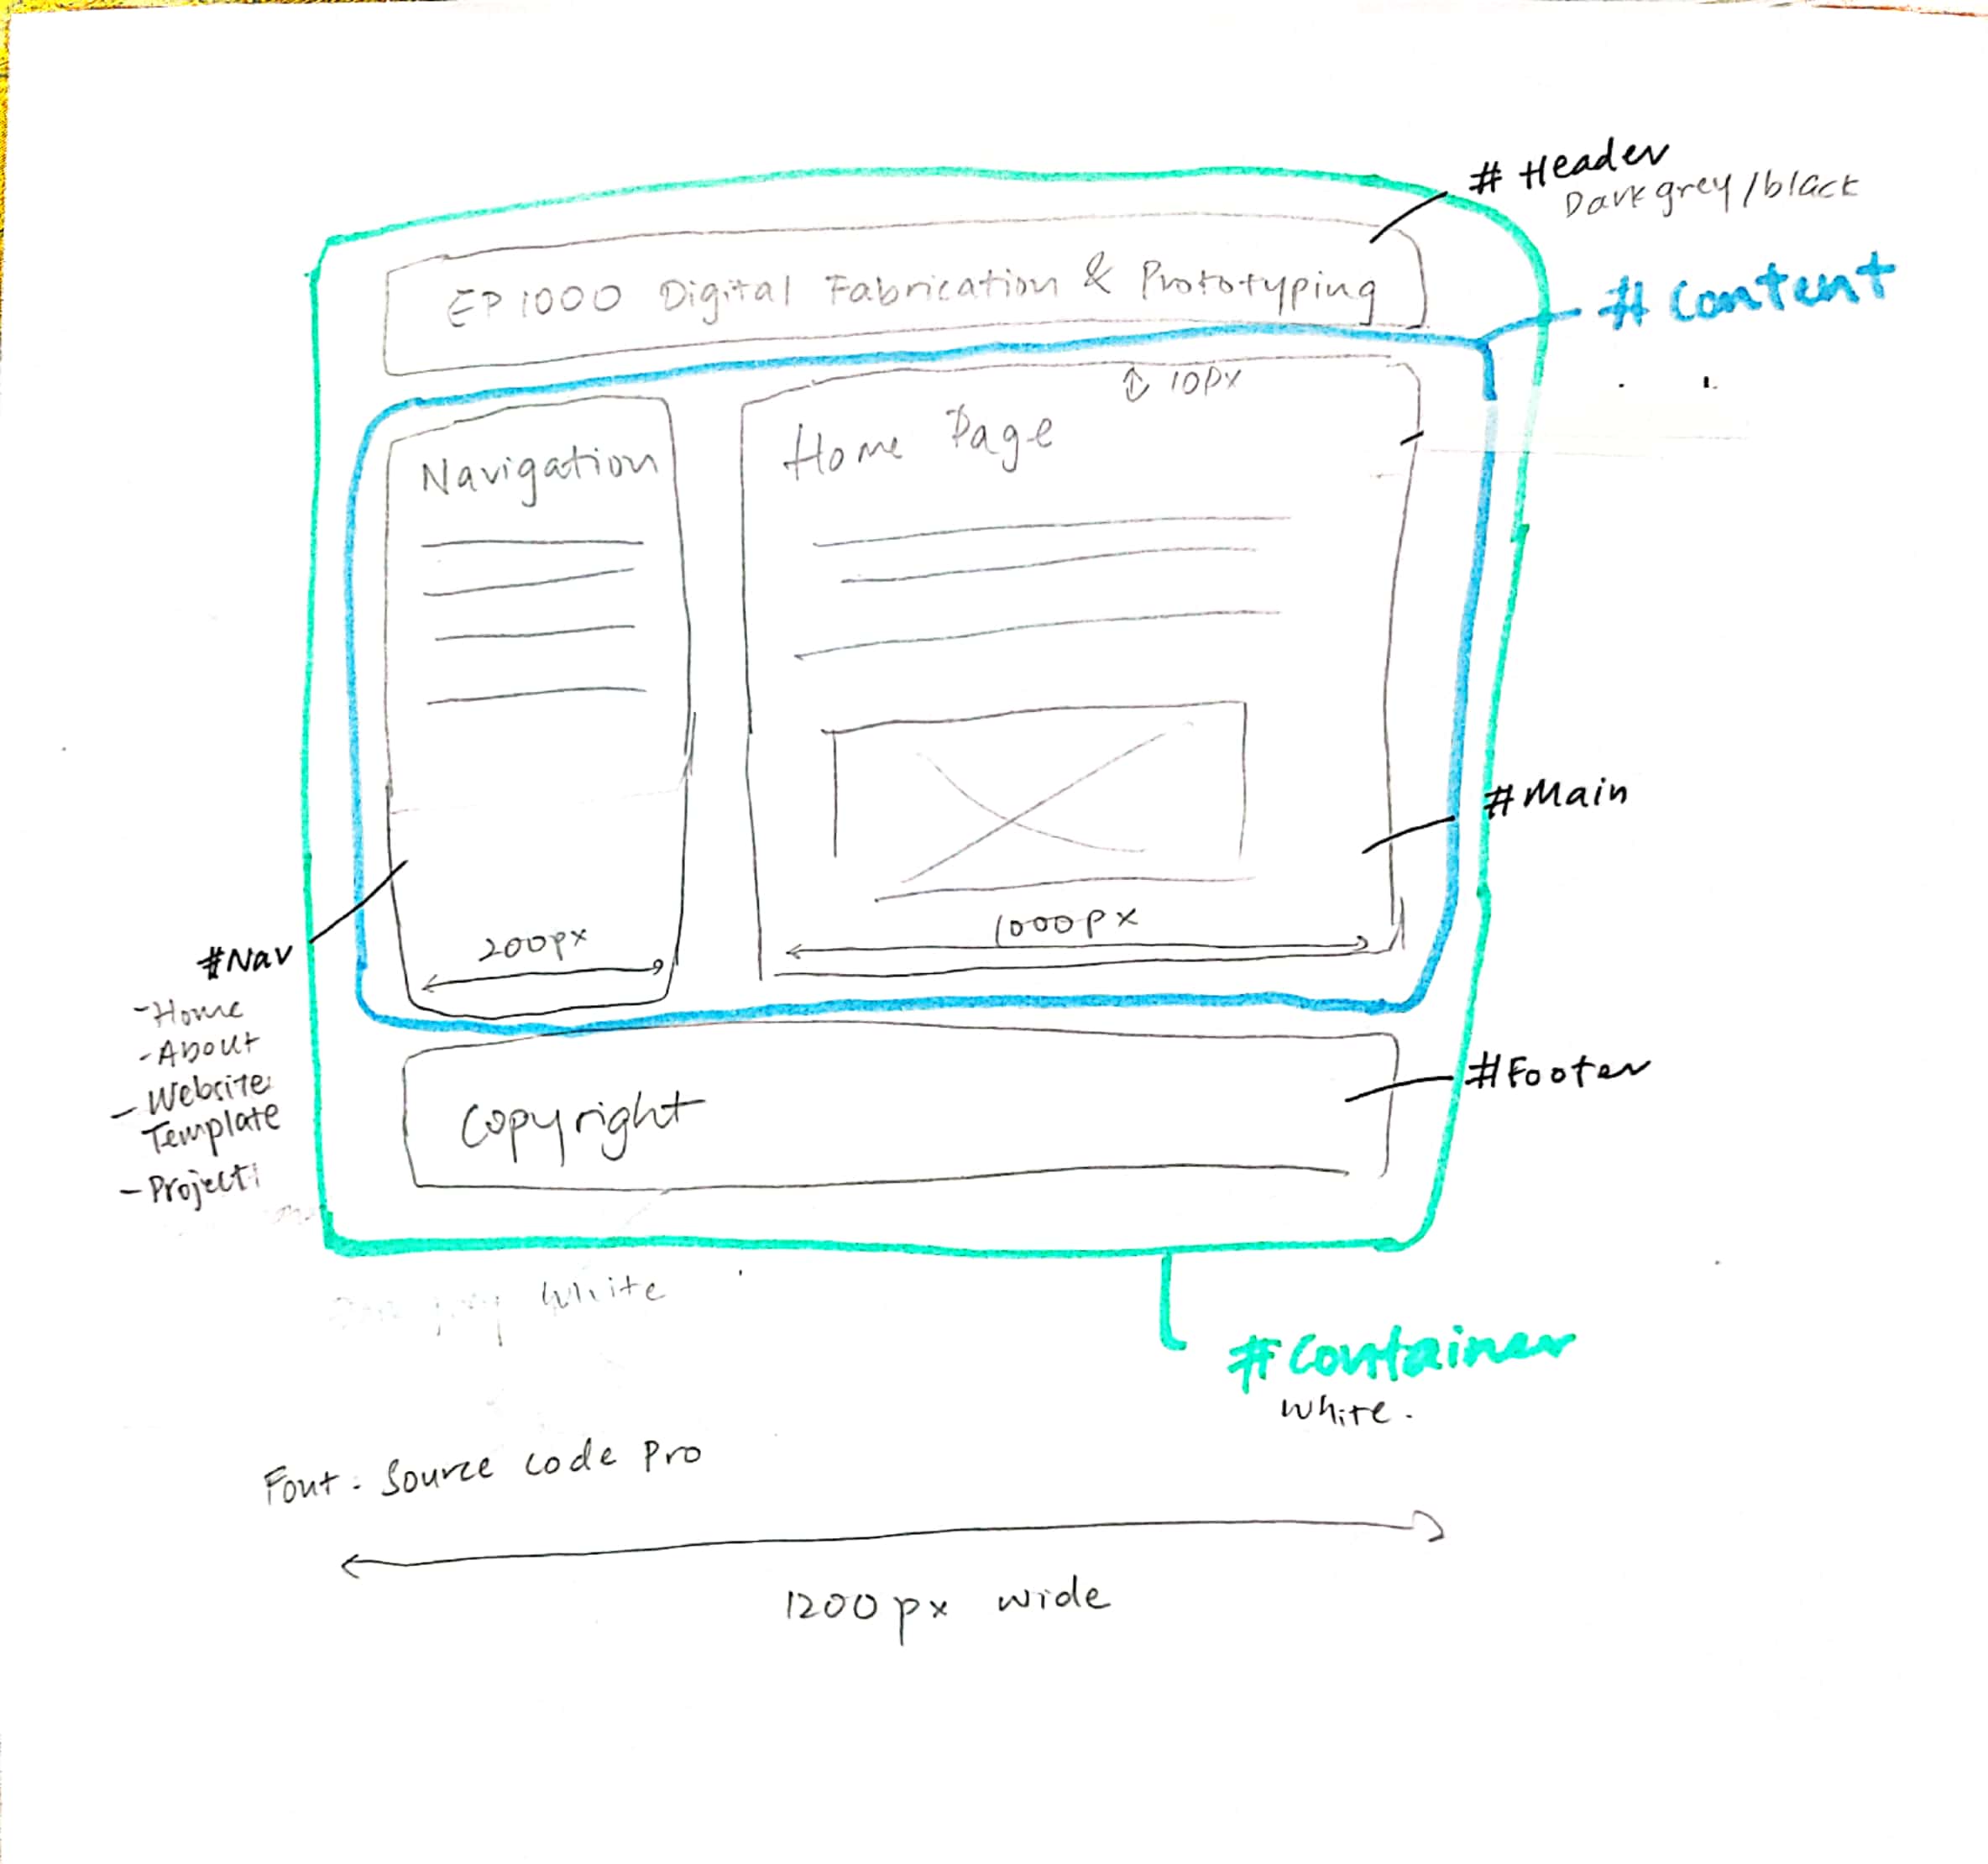 # Header
Dark grey/black
EP1000 Digital Fabrication & Prototyping
# Content
10px
Navigation
Home Page
#Main
200px
1000px
#Nav
-Home
-About
-Website
Template
-Project
#Footer
Copyright
White
#Container
White.
Font: Source Code Pro
1200px wide